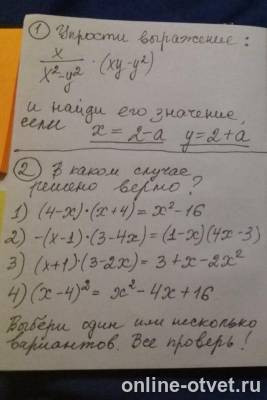 ① Упрости выражение:
x/(x²-y²) · (xy-y²)
и найди его значение,
если x = 2-a y = 2+a
② В каком случае
решено верно?
1) (4-x)·(x+4) = x²-16
2) -(x-1)·(3-4x) = (1-x)(4x-3)
3) (x+1)·(3-2x) = 3+x-2x²
4) (x-4)² = x²-4x+16
Выбери один или несколько
вариантов. Все проверь!
online-otvet.ru